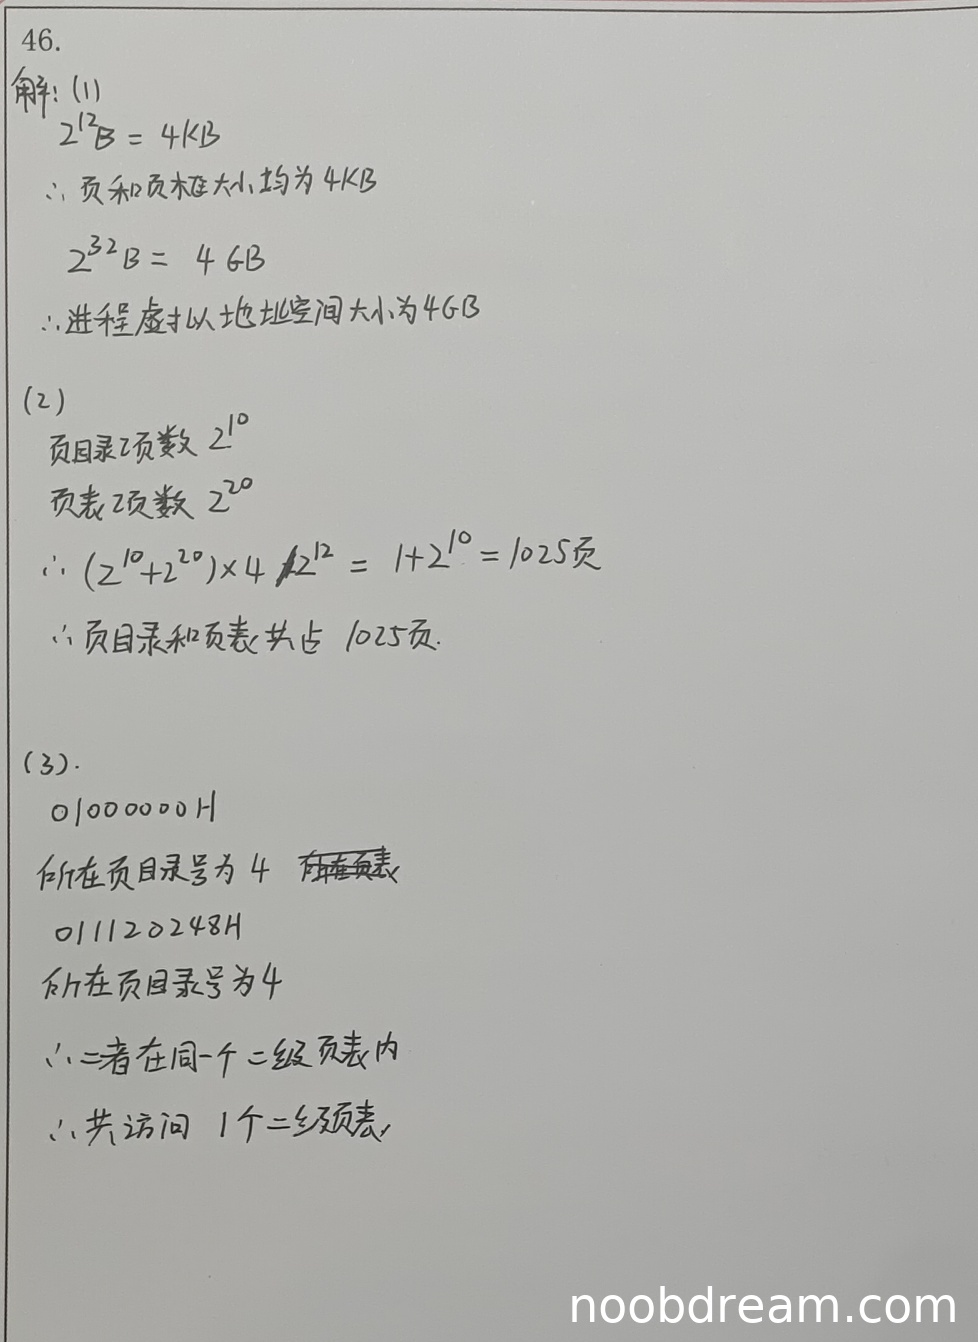 46.
解: (1)
2^12 B = 4KB
∴ 页和页框大小均为4KB
2^32 B = 4 GB
∴进程虚拟地址空间大小为4GB
(2)
页目录项数 2^10
页表项数 2^20
∴ (2^10+2^20)×4 /2^12 = 1+2^10 = 1025页
∴ 页目录和页表共占 1025页.
(3).
01000000H
所在页目录号为 4 所在页表
01112048H
所在页目录号为4
∴二者在同一个二级页表内
∴共访问 1个二级页表
noobdream.com